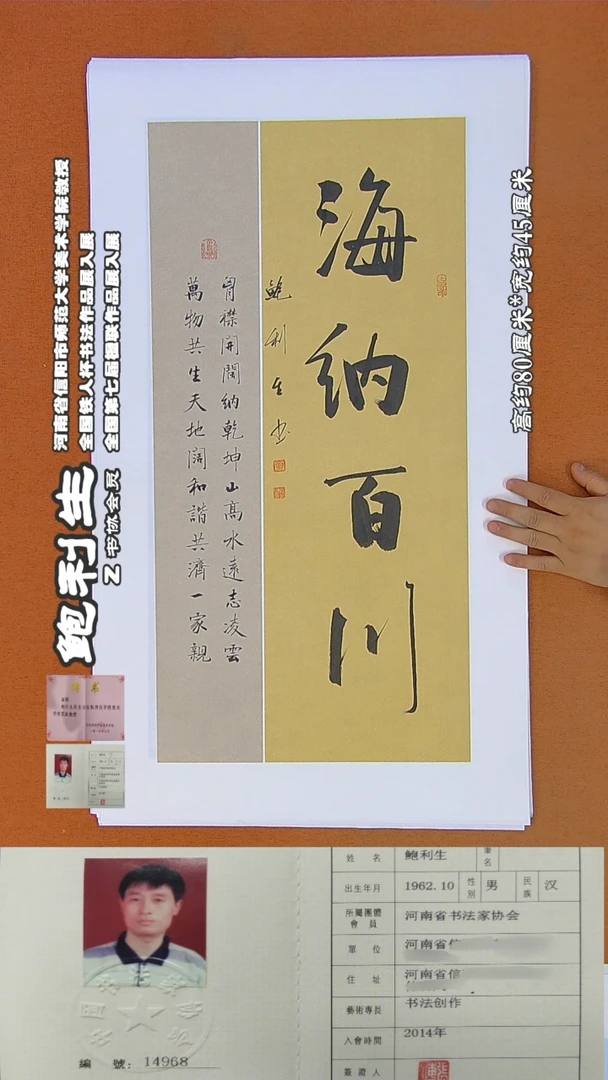 海納百川
鮑利生書
胷襟開闊納乾坤山高水遠志凌雲
萬物共生天地闊和諧共濟一家親
高约80厘米*宽约45厘米
河南省信阳市师范大学美术学院教授
全国铁人杯书法作品展入展
全国第七届楹联作品展入展
鲍利生
Z书协会员
聘书
姓名 鲍利生 筆名
出生年月 1962.10 性別 男 民族 汉
所屬團體會員 河南省书法家协会
單位 河南省信
住址 河南省信
藝術專長 书法创作
入會時間 2014年
簽證人
編號：14968